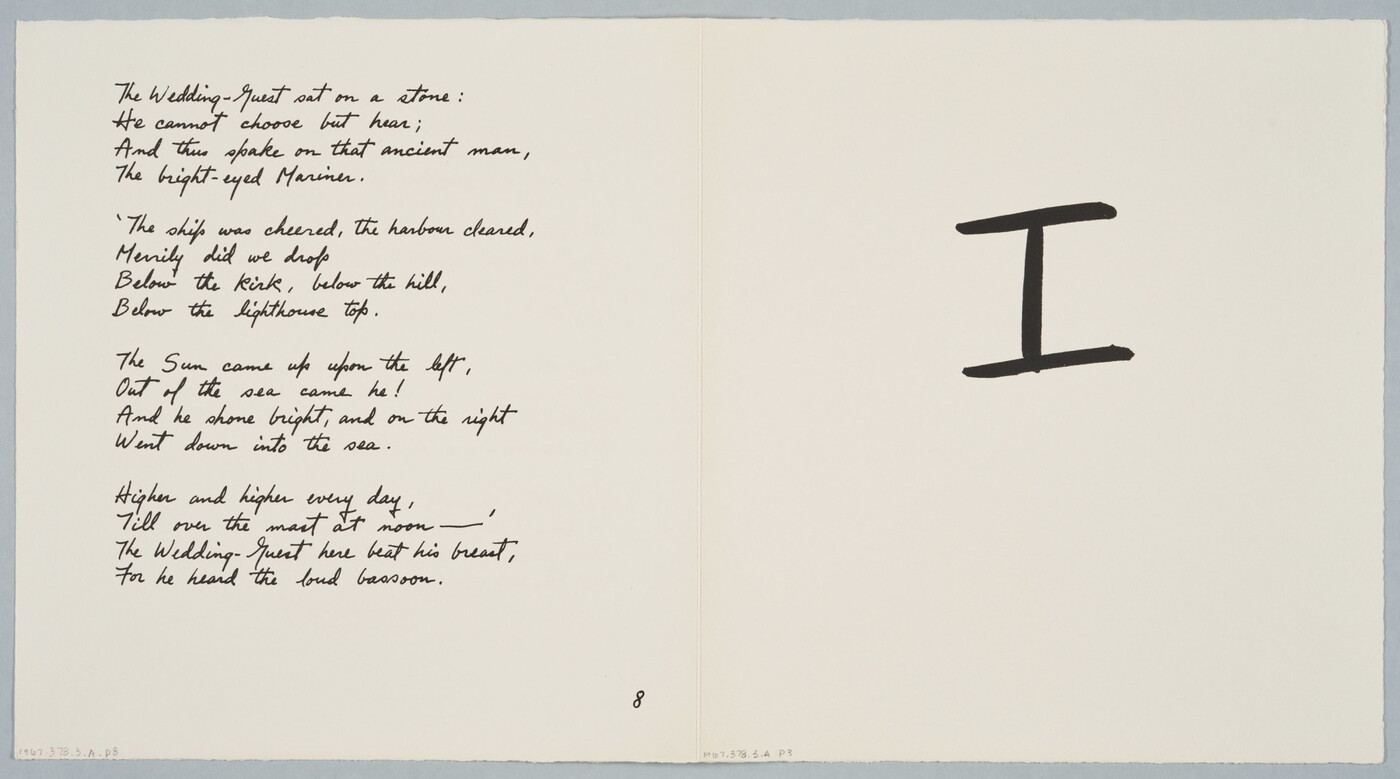 The Wedding-Guest sat on a stone:
He cannot choose but hear;
And thus spake on that ancient man,
The bright-eyed Mariner.
'The ship was cheered, the harbour cleared,
Merrily did we drop
Below the kirk, below the hill,
Below the lighthouse top.
The Sun came up upon the left,
Out of the sea came he!
And he shone bright, and on the right
Went down into the sea.
Higher and higher every day,
Till over the mast at noon —'
The Wedding-Guest here beat his breast,
For he heard the loud bassoon.
8
1967.378.3.A.p8
I
1967.378.3.A P3